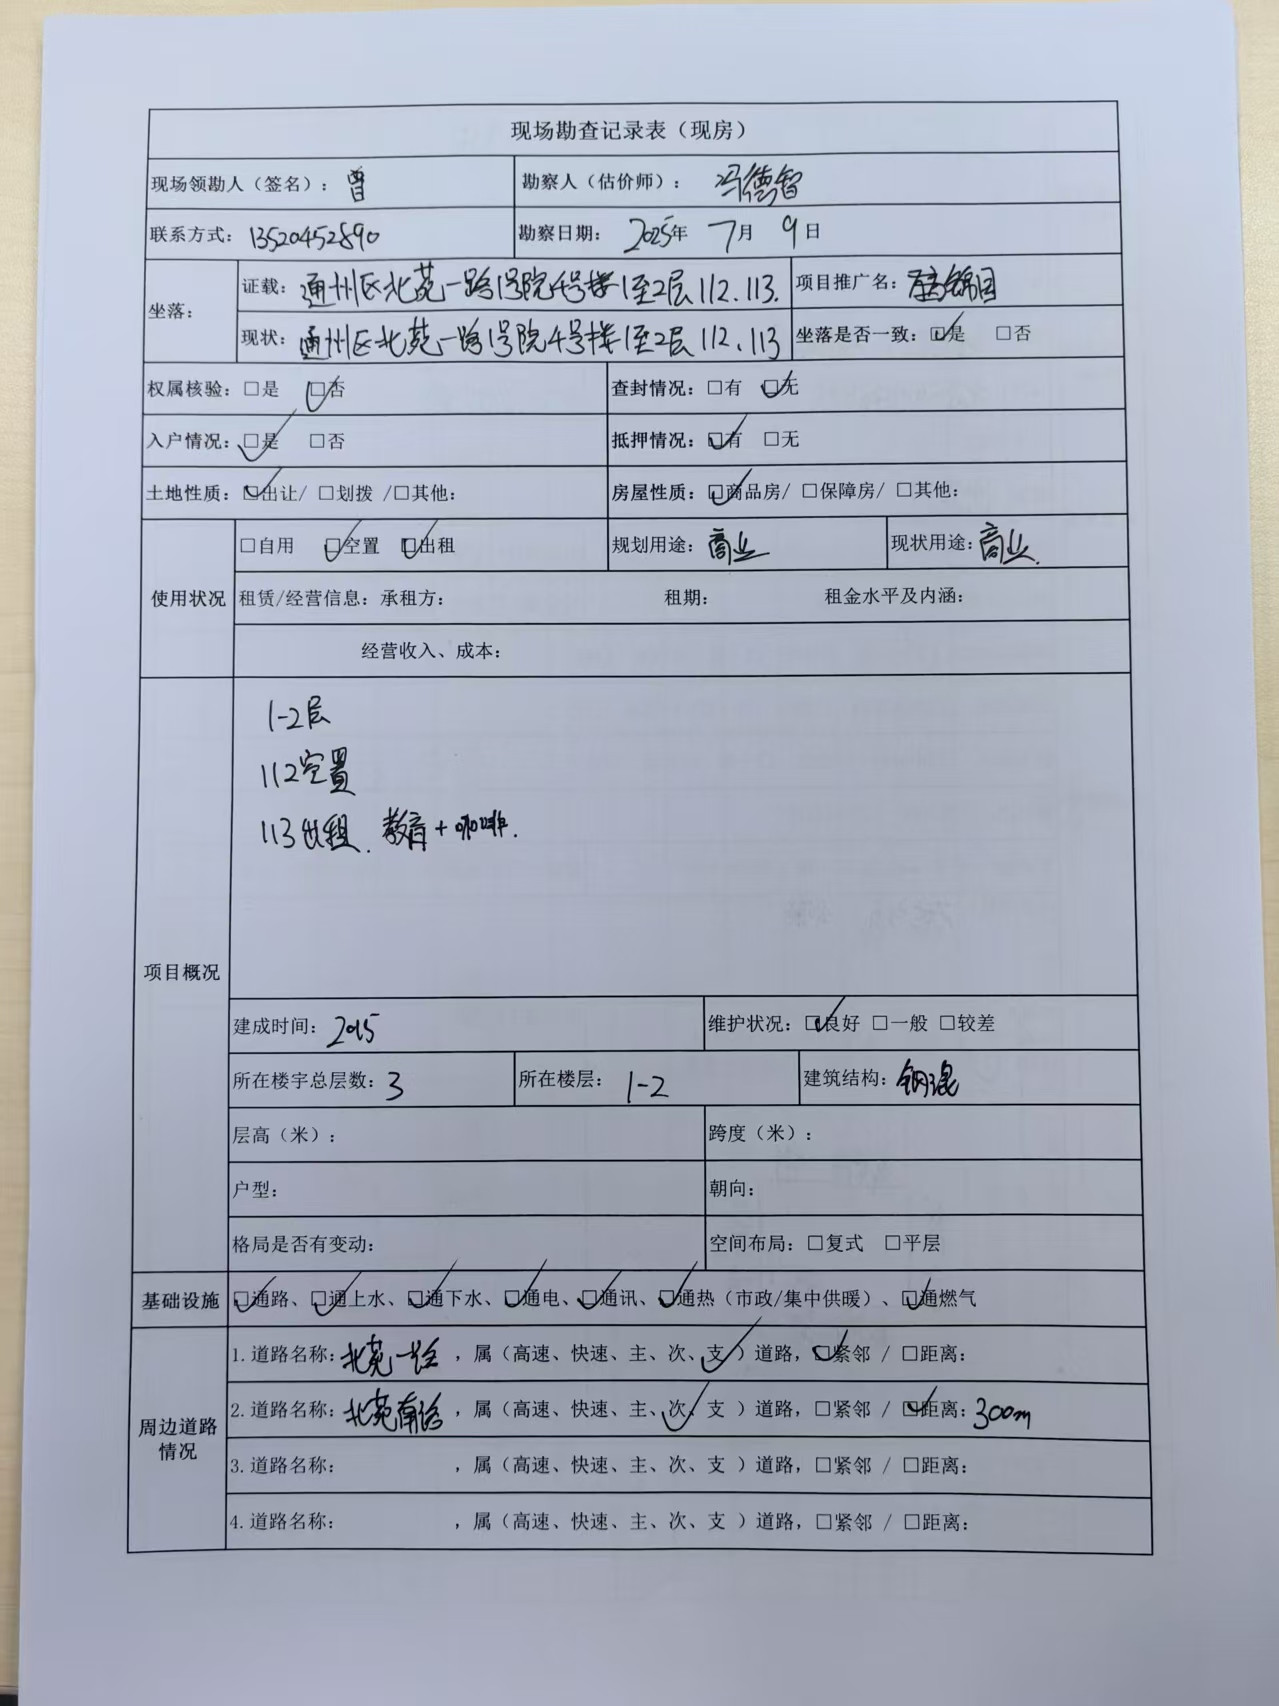 现场勘查记录表（现房）
现场领勘人（签名）：曾 勘察人（估价师）：冯德智
联系方式：13520452890 勘察日期：2025年 7月 9日
坐落：
证载：通州区北苑一路1号院4号楼1至2层112、113. 项目推广名：锦园
现状：通州区北苑一路1号院4号楼1至2层112、113 坐落是否一致：☑是 □否
权属核验：□是 ☑否 查封情况：□有 ☑无
入户情况：☑是 □否 抵押情况：☑有 □无
土地性质：☑出让/ □划拨 /□其他： 房屋性质：☑商品房/ □保障房/ □其他：
使用状况
□自用 ☑空置 ☑出租 规划用途：商业 现状用途：商业.
租赁/经营信息：承租方： 租期： 租金水平及内涵：
经营收入、成本：
项目概况
1-2层
112空置
113出租. 教育+咖啡.
建成时间：2015 维护状况：☑良好 □一般 □较差
所在楼宇总层数：3 所在楼层：1-2 建筑结构：钢混
层高（米）： 跨度（米）：
户型： 朝向：
格局是否有变动： 空间布局：□复式 □平层
基础设施 ☑通路、☑通上水、☑通下水、☑通电、☑通讯、☑通热（市政/集中供暖）、☑通燃气
周边道路情况
1.道路名称：北苑一路，属（高速、快速、主、次、支✓）道路，☑紧邻 / □距离：
2.道路名称：北苑南路，属（高速、快速、主、次✓、支 ）道路，□紧邻 / ☑距离：300m
3.道路名称： ，属（高速、快速、主、次、支 ）道路，□紧邻 / □距离：
4.道路名称： ，属（高速、快速、主、次、支 ）道路，□紧邻 / □距离：